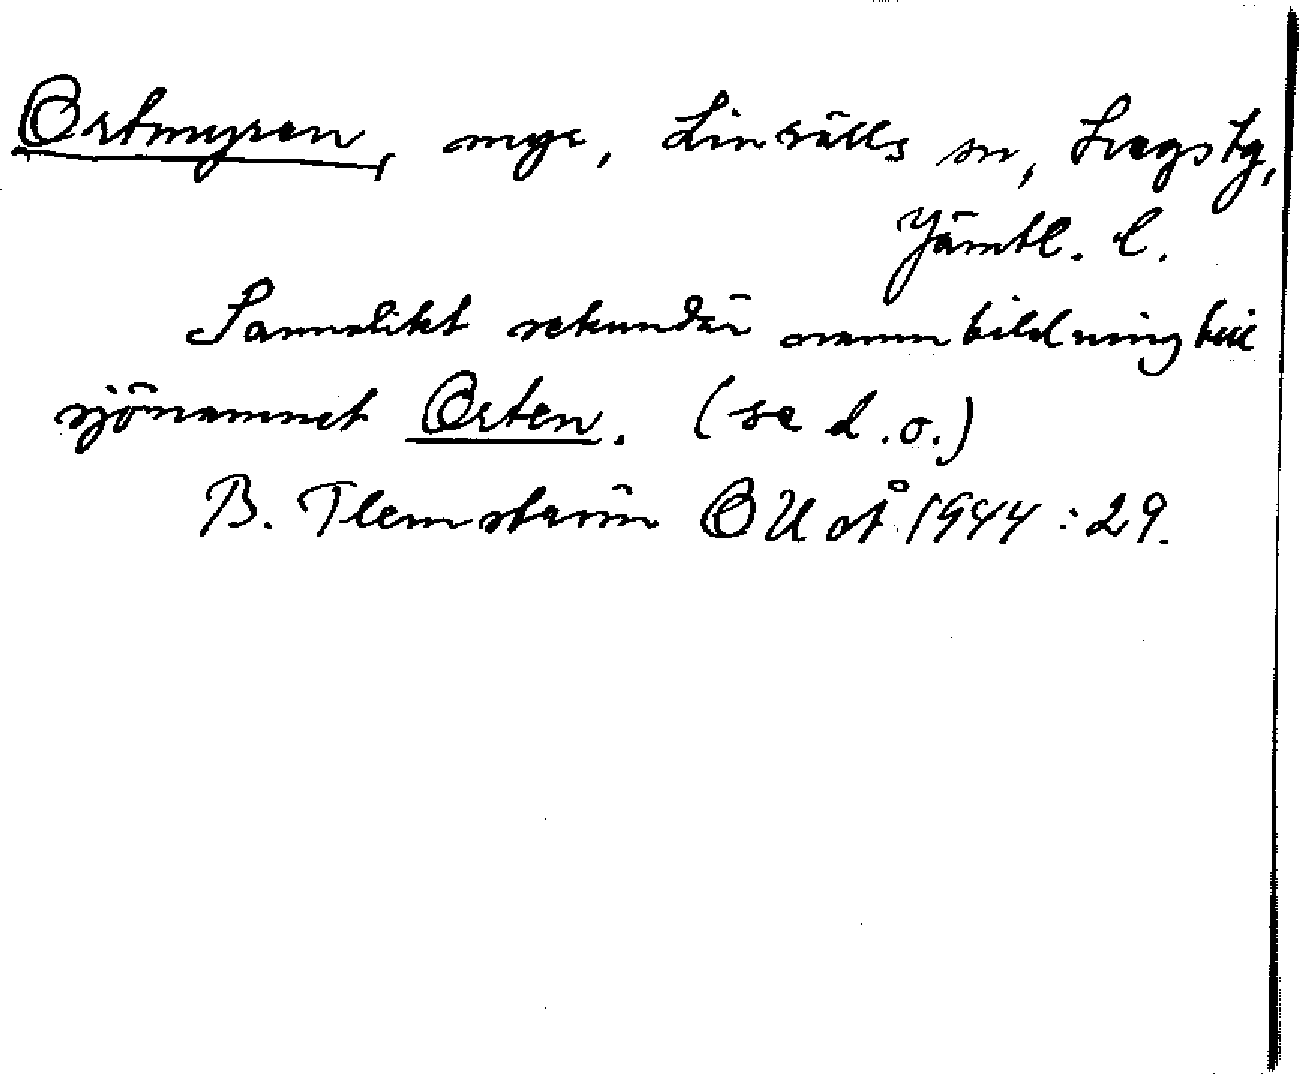 Ortmyren, myr, Linsälls sn, Svegs tg,
Jämtl. l.
Sannolikt sekundär namnbildning till
sjönamnet Orten. (se d.o.)
B. Flemström OU 1944:29.